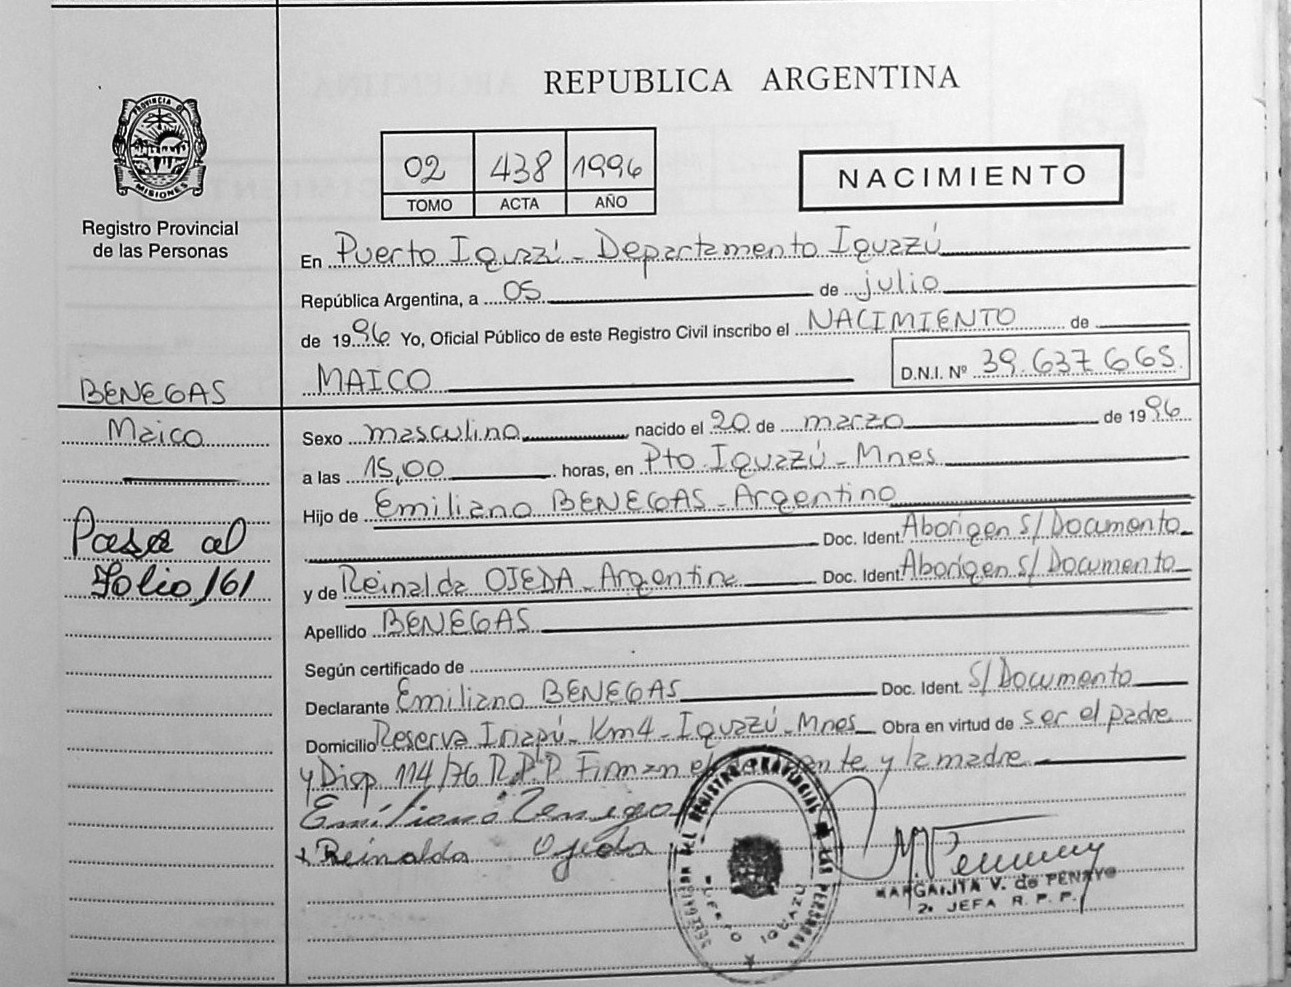 REPUBLICA ARGENTINA
PROVINCIA DE
MISIONES
Registro Provincial
de las Personas
02 438 1996
TOMO ACTA AÑO
NACIMIENTO
En Puerto Iguazú - Departamento Iguazú
República Argentina, a 05 de julio
de 1996 Yo, Oficial Público de este Registro Civil inscribo el NACIMIENTO de
MAICO
D.N.I. Nº 39.637.665
BENEGAS
Maico
Pasa al
Folio 161
Sexo masculino nacido el 20 de marzo de 1996
a las 15,00 horas, en Pto. Iguazú - Mnes
Hijo de Emiliano BENEGAS - Argentino
Doc. Ident. Aborigen S/Documento
y de Reinalda OJEDA - Argentina Doc. Ident. Aborigen S/Documento
Apellido BENEGAS
Según certificado de
Declarante Emiliano BENEGAS Doc. Ident. S/Documento
Domicilio Reserva Iriapú - Km4 - Iguazú - Mnes Obra en virtud de ser el padre
y Disp. 114/76 R.P.P Firman el y la madre
Emiliano Benega
+ Reinalda Ojeda
DEL REGISTRO PROVINCIAL DE LAS PERSONAS
IGUAZU
MARGARITA V. de PENAYO
2a JEFA R. P. P.